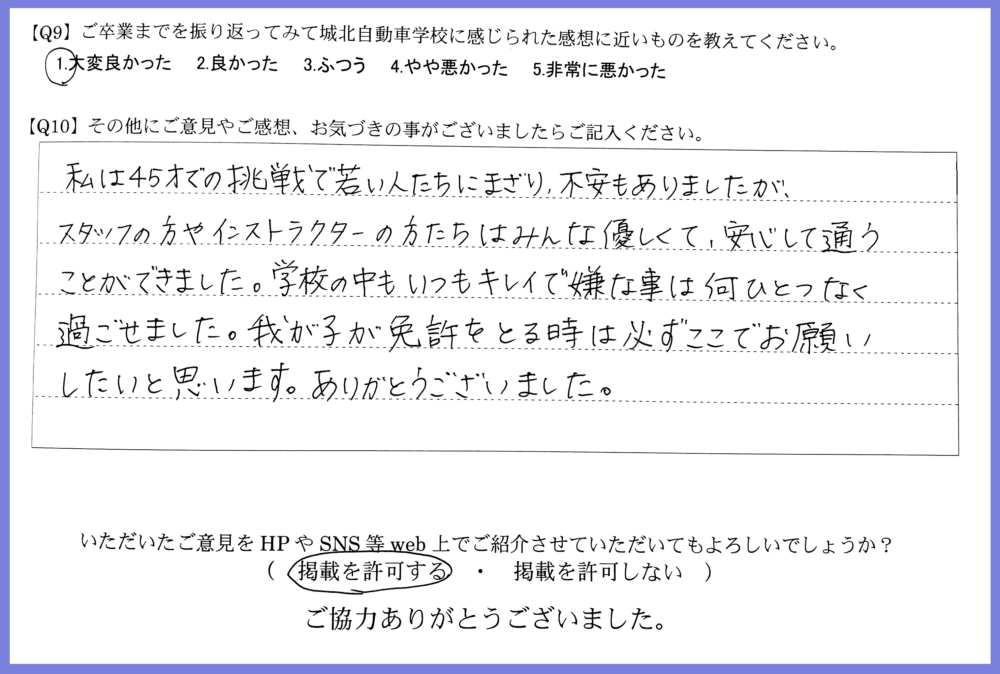 【Q9】ご卒業までを振り返ってみて城北自動車学校に感じられた感想に近いものを教えてください。
1.大変良かった 2.良かった 3.ふつう 4.やや悪かった 5.非常に悪かった
【Q10】その他にご意見やご感想、お気づきの事がございましたらご記入ください。
私は45才での挑戦で若い人たちにまざり、不安もありましたが、
スタッフの方やインストラクターの方たちはみんな優しくて、安心して通う
ことができました。学校の中もいつもキレイで嫌な事は何ひとつなく
過ごせました。我が子が免許をとる時は必ずここでお願い
したいと思います。ありがとうございました。
いただいたご意見をHPやSNS等web上でご紹介させていただいてもよろしいでしょうか？
（ 掲載を許可する ・ 掲載を許可しない ）
ご協力ありがとうございました。